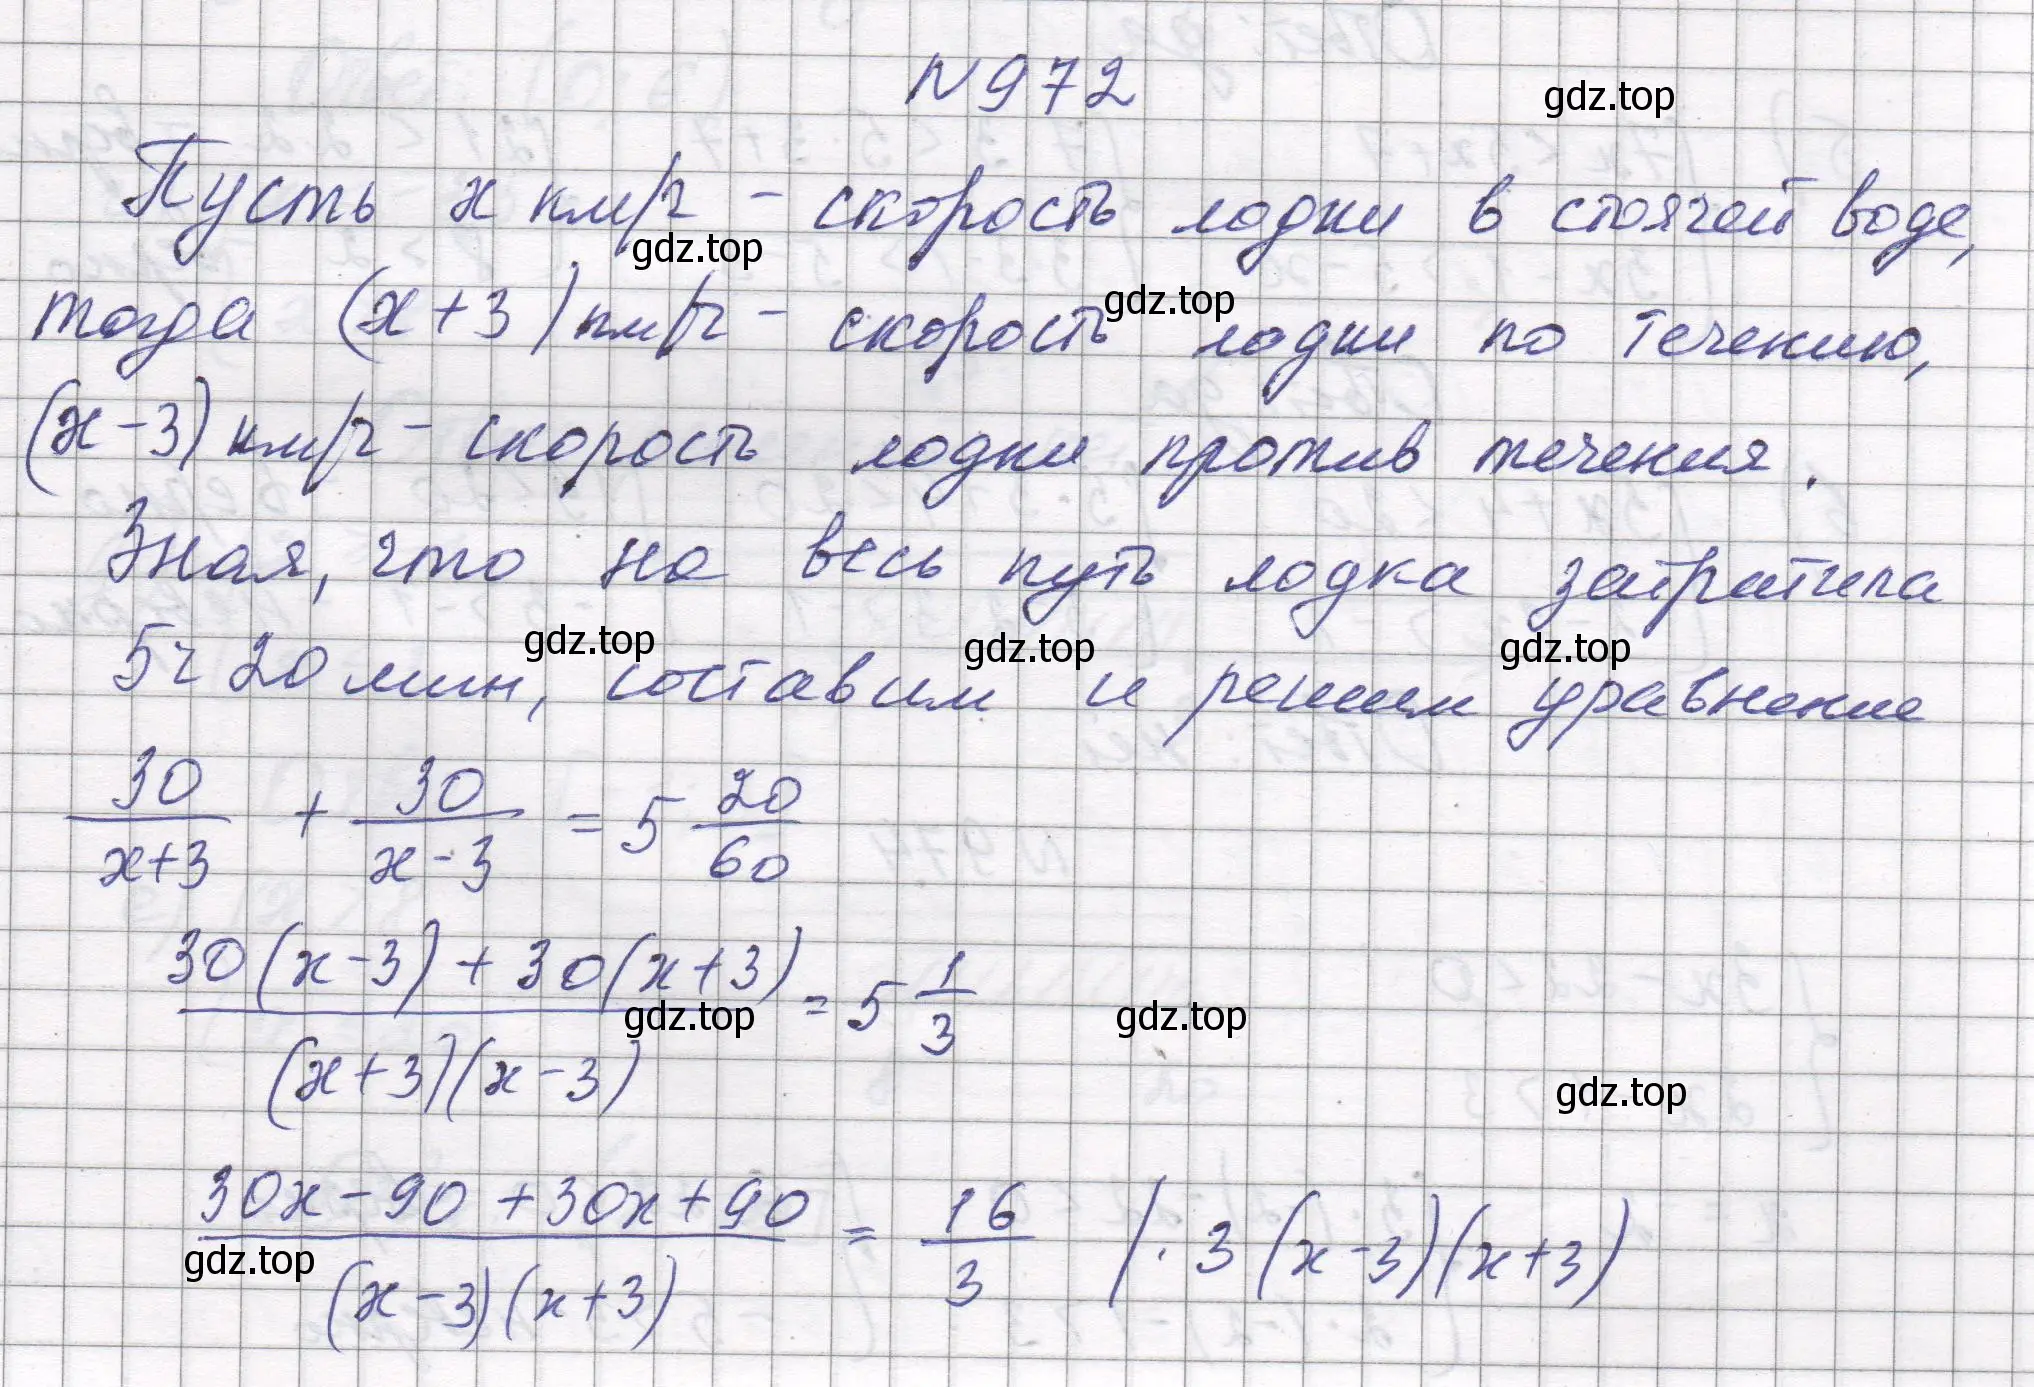 N972
gdz.top
Пусть x км/ч - скорость лодки в стоячей воде,
gdz.top
gdz.top
тогда (x+3) км/ч - скорость лодки по течению,
(x-3) км/ч - скорость лодки против течения.
Зная, что на весь путь лодка затратила
gdz.top gdz.top gdz.top
5ч 20 мин, составим и решим уравнение
30/(x+3) + 30/(x-3) = 5 20/60
(30(x-3)+30(x+3))/((x+3)(x-3)) = 5 1/3
gdz.top gdz.top
gdz.top
(30x-90+30x+90)/((x-3)(x+3)) = 16/3 /·3(x-3)(x+3)
gdz.top